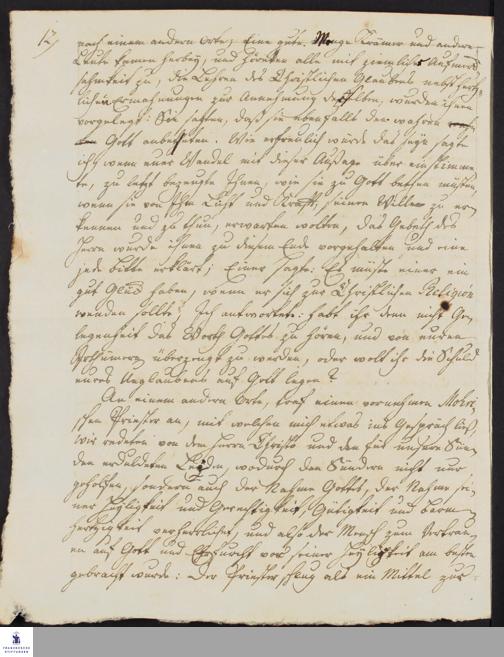 12)
nach einem andern Orte; Eine gute Menge Krämer und andere
Leute kamen herbey, und hörten alle mit ziemlicher Aufmerk-
samkeit zu, die Lehren des Christlichen Glaubens nebst herz-
lichen Ermahnungen zur Annehmung deßelben, wurden ihnen
vorgelegt: Sie sagten, daß sie ebenfalls den wahren
Gott anbetheten. Wie erfreulich würde das seyn sagte
ich, wenn euer Wandel mit dieser Aussage über einstimme-
te, zu letzt bezeugte Ihnen, wie sie zu Gott bethen müsten,
wenn sie von Ihm Licht und Kraft, seinen Willen zu er-
kennen und zu thun, erwarten wolten, das Gebeth des
Herrn wurde ihnen zu diesem Ende vorgehalten und eine
jede bitte erklärt; Einer sagte: Es müste einer ein
gut Glück haben, wenn er sich zur Christlichen Religion
wenden sollte? Ich antwortete: habt ihr denn nicht Ge-
legenheit das Worth Gottes zu hören, und von euren
Irthümern überzeugt zu werden, oder wolt ihr die Schuld
eures Unglaubens auf Gott legen?
An einem andern Orte, traf einen vornehmen
Priester an, mit welchen mich etwas ins Gespräch ließ,
Wir redeten von dem Herrn Christo und den für unsere Sün-
den erduldeten Leyden, wodurch den Sündern nicht nur
geholfen, sondern auch der Nahme Gottes, der Nahme sei-
ner Heyligkeit und Gerechtigkeit, Gütigkeit und Barm-
herzigkeit verherrlichet, und also der Mensch zum Vertrau-
en auf Gott und Ehrfurcht vor seiner Heyligkeit am besten
gebracht wurde: Der Priester schlug als ein Mittel zur
FRANCKESCHE
STIFTUNGEN